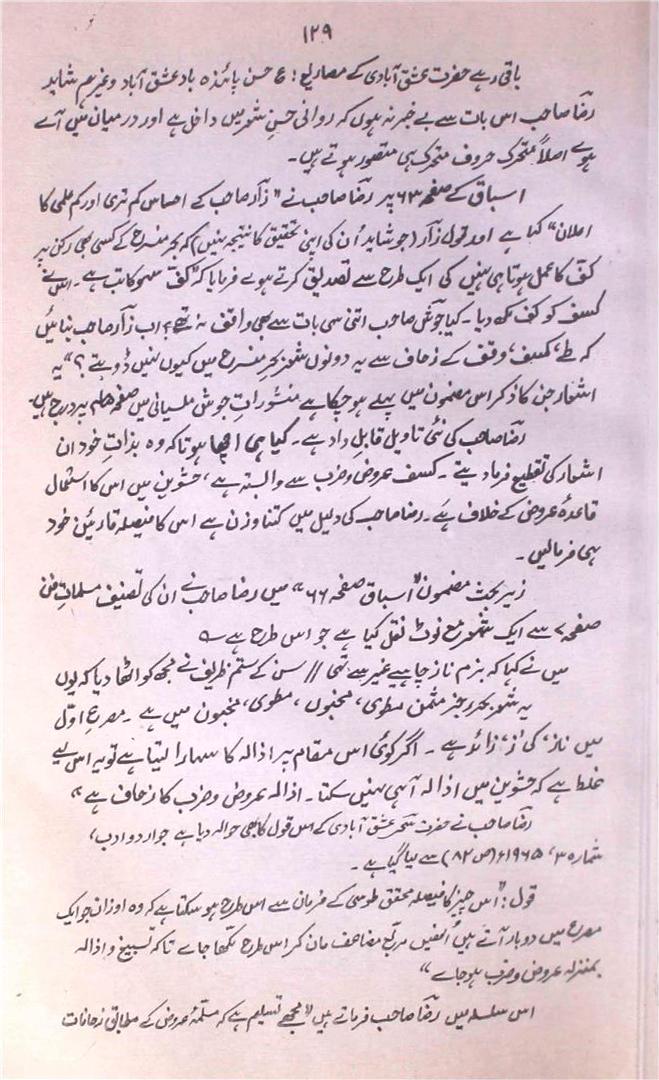 ۱۲۹
باقی رہے حضرت عشق آبادی کے مصاریع: ع حسن پائندہ باد عشق آباد وغیرہم شاید
رضا صاحب اس بات سے بے خبر نہ ہوں کہ روانی حسنِ شعر میں داخل ہے اور درمیان میں آے
ہوے اصلاً متحرک حروف متحرک ہی متصور ہوتے ہیں۔
اسباق کے صفحہ ۶۳ پر رضا صاحب نے "زار صاحب کے احساس کم تری اور کم علمی کا
اعلان" کہا ہے اور قول زار (جو شاید اُن کی اپنی تحقیق کا نتیجہ نہیں) کہ بحر منسرح کے کسی بھی رکن پر
کف کا عمل ہوتا ہی نہیں کی ایک طرح سے تصدیق کرتے ہوے فرمایا کہ "کف سہو کاتب ہے۔ اس نے
کسف کو کف لکھ دیا۔ کیا جوش صاحب اتنی سی بات سے بھی واقف نہ تھے؟ اب زار صاحب بتائیں
کہ طے، کسف، وقف کے زحاف سے یہ دونوں شعر بحر منسرح میں کیوں نہیں ڈوبتے؟" یہ
اشعار جن کا ذکر اس مضمون میں پہلے ہو چکا ہے منشورات جوش ملسیانی میں صفحہ پر درج ہیں۔
رضا صاحب کی نئی تاویل قابل داد ہے۔ کیا ہی اچھا ہوتا کہ وہ بذات خود ان
اشعار کی تقطیع فرما دیتے۔ کسف عروض و ضرب سے وابستہ ہے، حشوین میں اس کا استعمال
قاعدۂ عروض کے خلاف ہے۔ رضا صاحب کی دلیل میں کتنا وزن ہے اس کا فیصلہ قارئین خود
ہی فرمالیں۔
زیر بحث مضمون "اسباق صفحہ ۶۶" میں رضا صاحب نے ان کی تصنیف مسلمات فن
صفحہ ۷ سے ایک شعر مع نوٹ نقل کیا ہے جو اس طرح ہے ؎
میں نے کہا کہ بزم ناز چاہیے غیر سے تہی // سن کے ستم ظریف نے مجھ کو اٹھا دیا کہ یوں
یہ شعر بحر رجز مثمن مطوی، مخبوں، مطوی، مخبون میں ہے۔ مصرع اوّل
میں ناز، کی 'ز' زائد ہے۔ اگر کوئی اس مقام پر اذالہ کا سہارا لیتا ہے تو یہ اس لیے
غلط ہے کہ حشوین میں اذالہ آ ہی نہیں سکتا۔ اذالہ عروض و ضرب کا زحاف ہے"
رضا صاحب نے حضرت سحر عشق آبادی کے اس قول کا بھی حوالہ دیا ہے جو اردو ادب،
شمارہ ۳، ۱۹۶۵ء (ص ۸۲) سے لیا گیا ہے۔
قول: "اس چیز کا فیصلہ محقق طوسی کے فرمان سے اس طرح ہو سکتا ہے کہ وہ اوزان جو ایک
مصرع میں دوبار آتے ہیں اُنھیں مربع مضاعف مان کر اس طرح لکھا جاے تاکہ تسبیغ و اذالہ
بمنزلہ عروض و ضرب ہو جاے"
اس سلسلہ میں رضا صاحب فرماتے ہیں "مجھے تسلیم ہے کہ مسلمۂ عروض کے مطابق زحافات